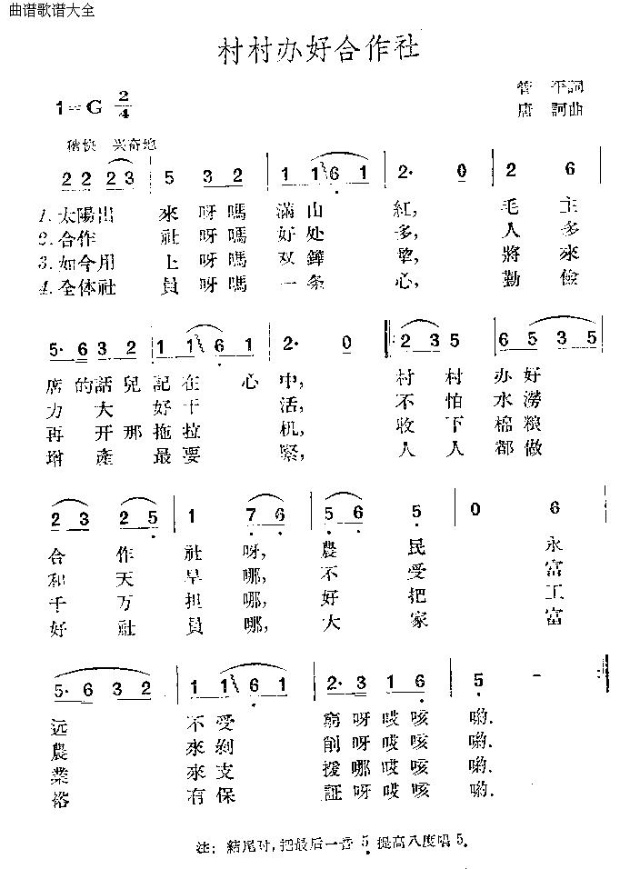 曲谱歌谱大全
村村办好合作社
管 平詞
唐 訶曲
1=G 2/4
稍快 兴奋地
2 2 2 3 | 5 3 2 | 1 1 6 1 | 2· 0 | 2 6 |
1. 太陽出 來呀嗎 滿山 紅, 毛主
2. 合作 社呀嗎 好处 多, 人多
3. 如今用 上呀嗎 双鏵 犂, 將來
4. 全体社 員呀嗎 一条 心, 勤儉
5· 6 3 2 | 1 1 6 1 | 2· 0 |: 2 3 5 | 6 5 3 5 |
席的話兒記在 心中, 村村办好
力大好干 活, 不怕水澇
再开那拖拉 机, 收下棉粮
增產最要 緊, 人人都做
2 3 2 5 | 1 7 6 | 5 6 5 | 0 6 |
合作社呀, 農民 永
和天旱哪, 不受 富
千万担哪, 好把 工
好社員哪, 大家 富
5· 6 3 2 | 1 1 6 1 | 2· 3 1 6 | 5 - :|
远 不受 窮呀哎咳 喲.
農 來剝 削呀哎咳 喲.
業 來支 援哪哎咳 喲.
裕 有保 証呀哎咳 喲.
注: 結尾时, 把最后一音 5 提高八度唱 5.